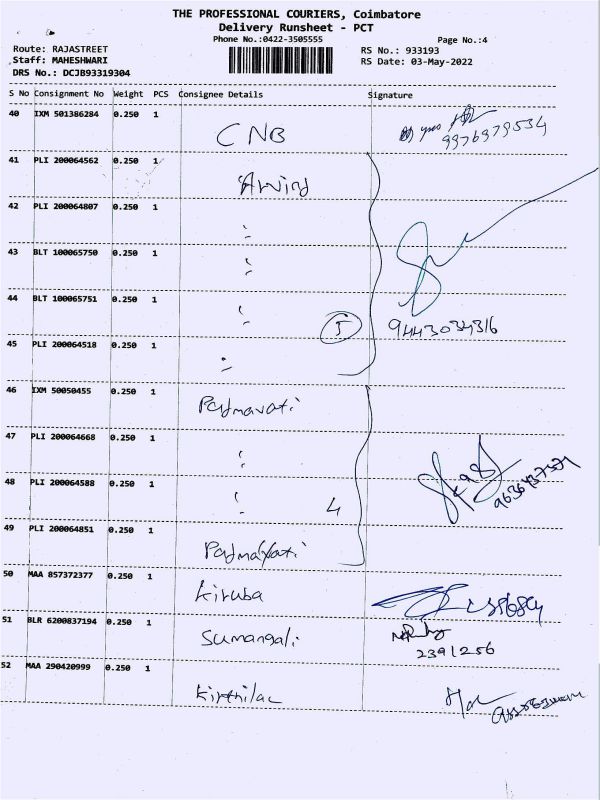 THE PROFESSIONAL COURIERS, Coimbatore
Delivery Runsheet - PCT
Phone No.:0422-3505555
Page No.:4
Route: RAJASTREET
RS No.: 933193
Staff: MAHESHWARI
RS Date: 03-May-2022
DRS No.: DCJB93319304
S No Consignment No Weight PCS Consignee Details Signature
40 IXM 501386284 0.250 1
CNB
9976979534
41 PLI 200064562 0.250 1
Arvind
42 PLI 200064807 0.250 1
43 BLT 100065750 0.250 1
44 BLT 100065751 0.250 1
5
9443034316
45 PLI 200064518 0.250 1
46 IXM 50050455 0.250 1
Padmavati
47 PLI 200064668 0.250 1
48 PLI 200064588 0.250 1
4
49 PLI 200064851 0.250 1
Padmavati
50 MAA 857372377 0.250 1
Kiruba
51 BLR 6200837194 0.250 1
Sumangali
2391256
52 MAA 290420999 0.250 1